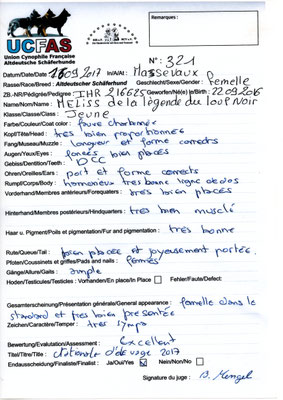 Remarques :
UCFAS
Union Cynophile Française
Altdeutsche Schäferhunde
N° : 321
Datum/Date/Date 16.09.2017 In/A/At : Massevaux
Rasse/Race/Breed : Altdeutscher Schäferhund Geschlecht/Sexe/Gender : femelle
ZB.-NR/Pédigrée/Pedigree : IHR 216625 Geworfen/Né(e)/Birth : 22.09.2016
Name/Nom/Name : MELISS de la légende du loup Noir
Klasse/Classe/Class : Jeune
Farbe/Couleur/Coat color : fauve charbonné
Kopf/Tête/Head : très bien proportionnée
Fang/Museau/Muzzle : Longueur et forme corrects
Augen/Yeux/Eyes : foncés bien placés
Gebiss/Dentition/Teeth : DCC
Ohren/Oreilles/Ears : port et forme corrects
Rumpf/Corps/Body : harmonieux tres bonne ligne de dos
Vorderhand/Membres antérieurs/Forequaters : très bien placés
Hinterhand/Membres postérieurs/Hindquarters : très bien musclé
Haar u. Pigment/Poils et pigmentation/Fur and pigmentation : très bonne
Rute/Queue/Tail : bien placée et joyeusement portée
Pfoten/Coussinets et griffes/Pads and nails : fermés
Gänge/Allure/Gaits : ample
Hoden/Testicules/Testicles : Vorhanden/En place/In Place Fehler/Fauts/Defect:
Gesamterscheinung/Présentation générale/General appearance : femelle dans le
standard et tres bien presentée
Zeichen/Caractère/Temper : très sympa
Bewertung/Evaluation/Assessment : Excellent
Titel/Titre/Title : Nationale d'élevage 2017
Endausscheidung/Finaliste/Finalist : Ja/Oui/Yes Nein/Non/No
Signature du juge : B. Mengel